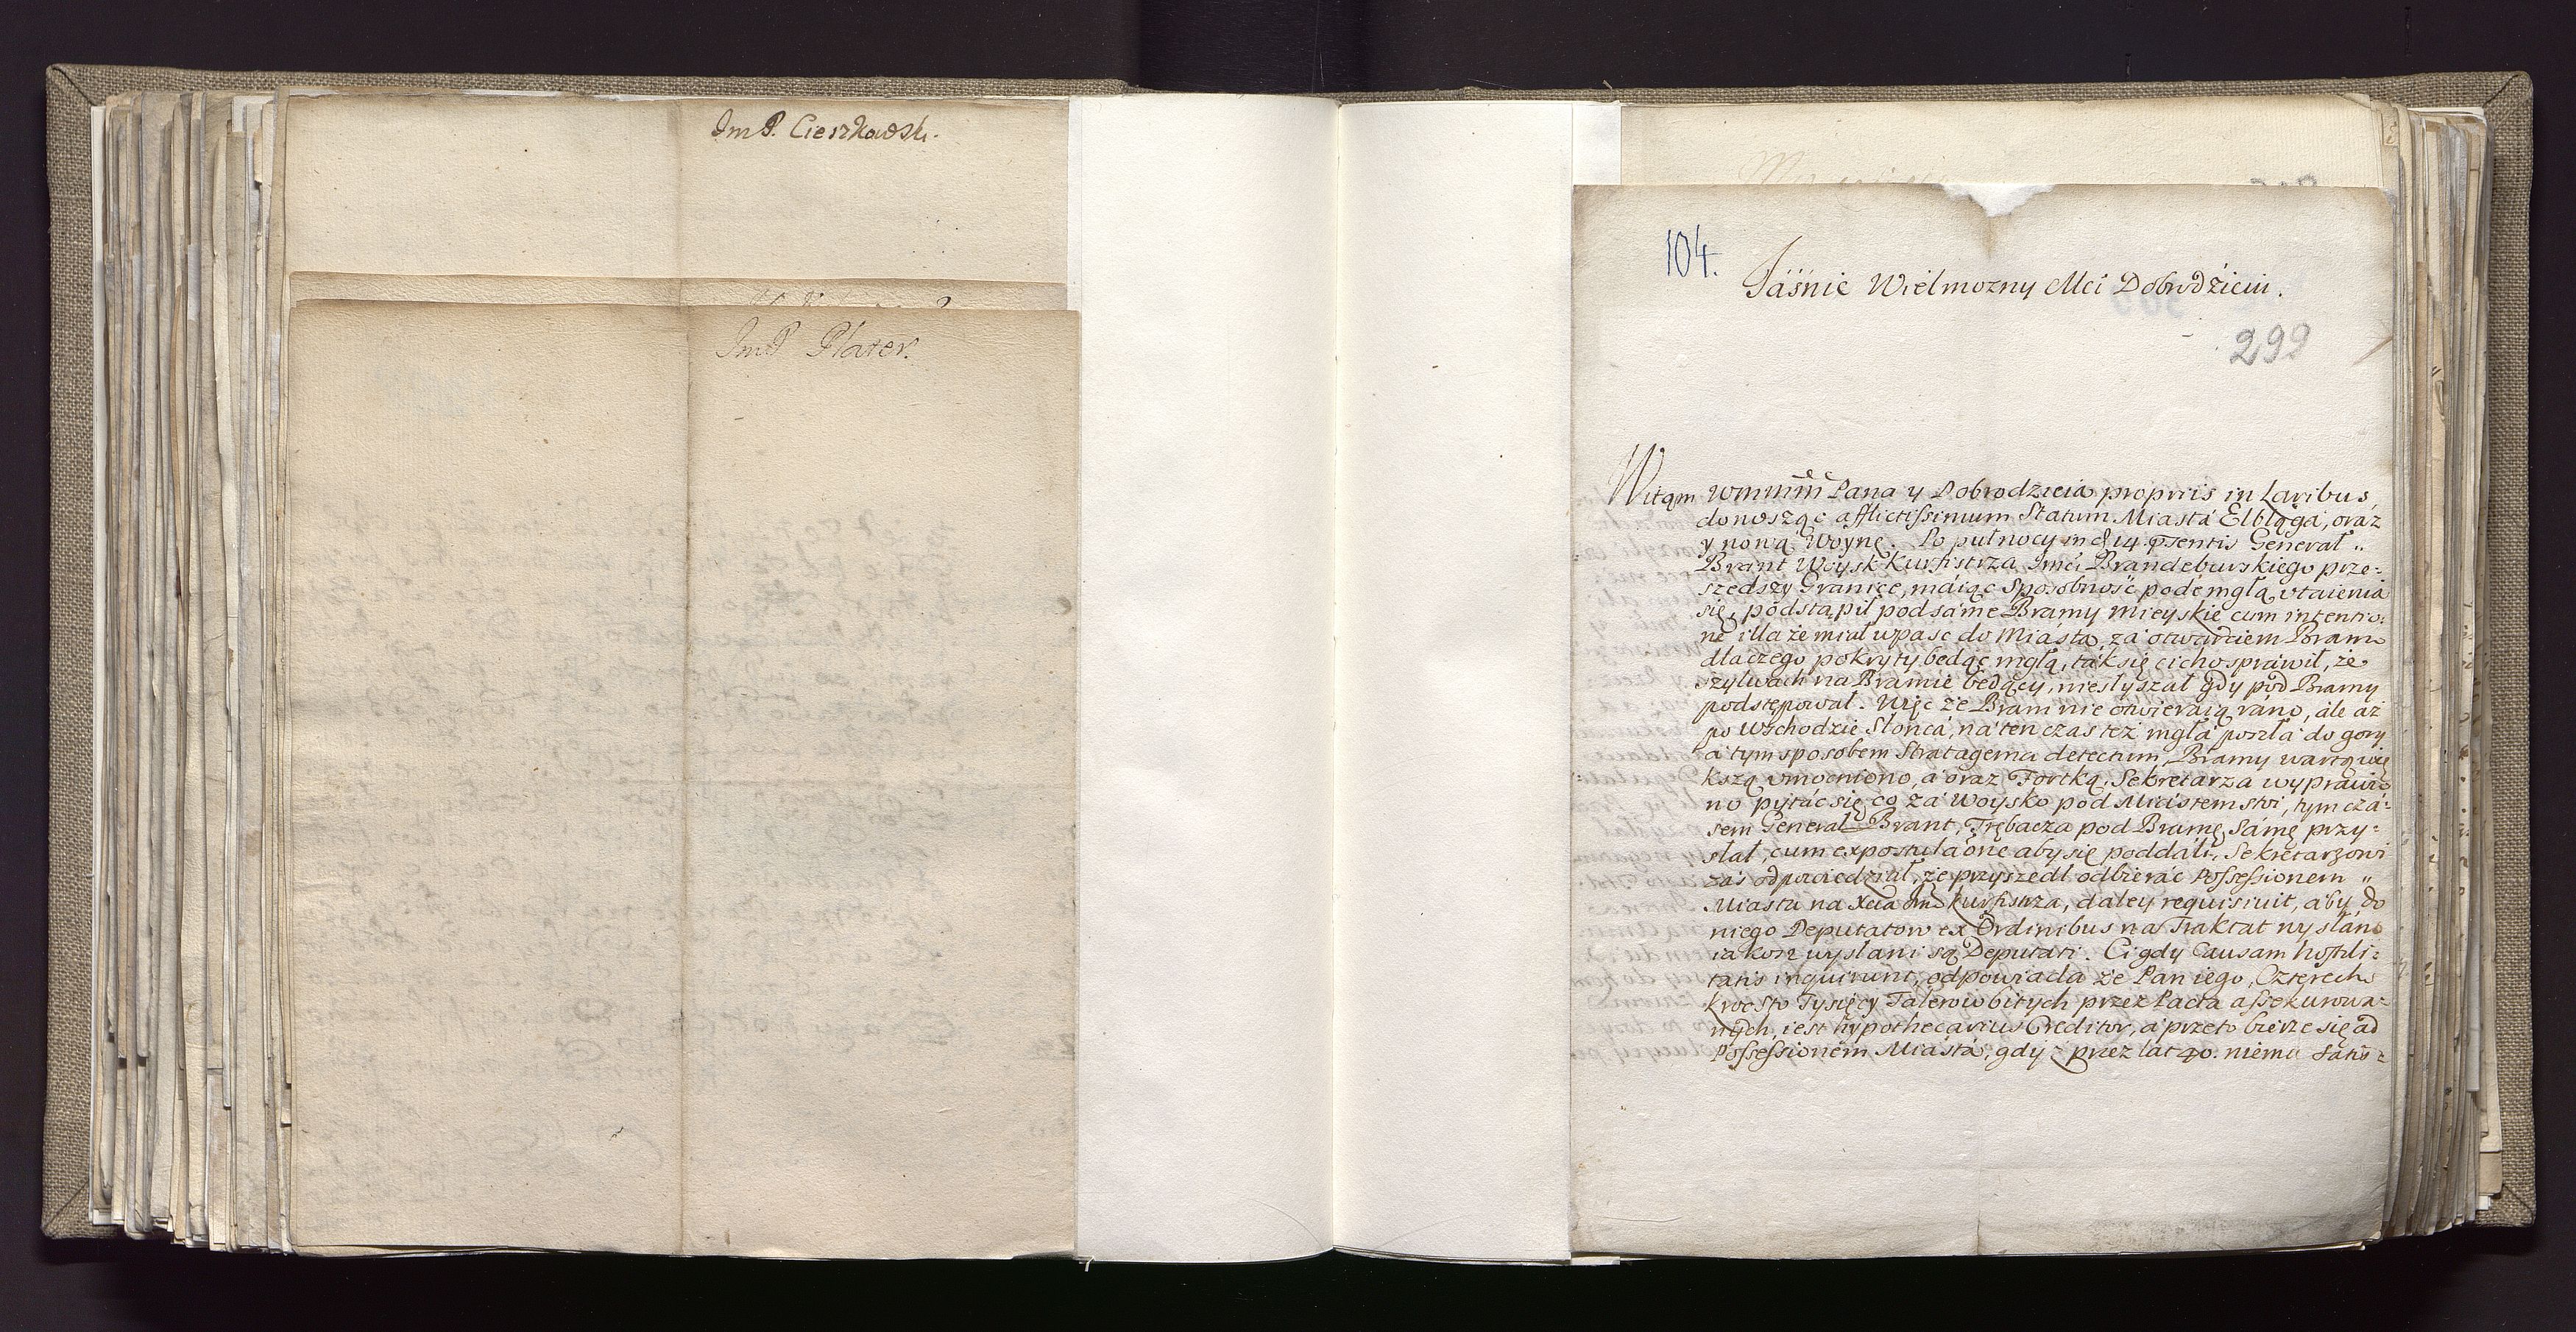 ImP. Cieszkowski.
ImP Plater.
104.
Jáśnie Wielmozny Mći Dobrodźieiu.
299
Witąm Wmmm Pana y Dobrodzieia propriis in Laribus,
donosząc afflictissimum Statum Miastá Elbląga, oraz
y nową Woynę. Po pułnocy in d 14 psentis Generał
Brant Woysk Kurfistrza Imci Brandeburskiego prze=
szedszy Granice, máiąc Sposobność pode mgłą vtaienia
się, podstąpił pod sáme Bramy Mieyskie cum intentio=
ne illa że miał wpaść do Miásta, zá otwarciem Bram
dlaczego pokryty będąc mgłą, ták się cicho spráwił, że
szylwach na Bramie będący, niesłyszał gdy pod Bramy
podstępował. Więc że Bram nie otwieraią ráno, ále aż
po Wschodzie Słońcá, ná ten czas też mgłá poszłá do gory
á tym sposobem Stratagema detectum, Bramy wartą wię
kszą vmocniono, á oraz Fortką Sekretarza wyprawio
no pytác się co zá Woysko pod Miástem stoi, tym czá=
sem Generał Brant, Trębacza pod Bramę sámę przy=
słał, cum expostulaone aby się poddáli, Sekretarzowi
zás odpowiedział, że przyszedł odbieráć Possessionem
Miasta na Xcia Imci Kurfistrza, daley requisiuit, áby do
niego Deputatow ex Ordinibus na Traktat wysłano
iakosz wysłani są Deputati. Ci gdy Causam hostili=
tatis inquirunt, odpowiada że Pan iego, Czterech
kroć sto Tysięcy Talerow bitych przez Pacta assekurowa=
nych, iest hypothecarius Creditor, á przeto bierze się ad
Possessionem Miástá, gdyż przez lat 40. niema Satis=